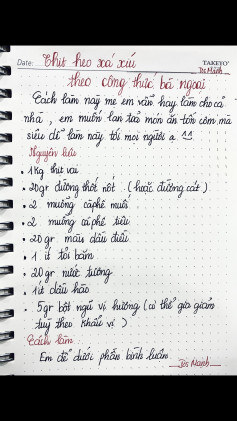 Date:
TAKEYO'
Jin Mạnh
Thịt heo xá xíu
theo công thức bà ngoại
Cách làm này mẹ em vẫn hay làm cho cả
nhà, em muốn lan toả món ăn tốn cơm mà
siêu dễ làm này tới mọi người ạ ^^
Nguyên liệu
• 1kg thịt vai
• 20gr đường thốt nốt (hoặc đường cát)
• 2 muỗng cà phê muối
• 2 muỗng cà phê tiêu
• 20 gr màu dầu điều
• 1 ít tỏi băm
• 20gr nước tương
• 1 ít dầu hào
• 5gr bột ngũ vị hương (có thể gia giảm
tuỳ theo khẩu vị)
Cách làm
Em để dưới phần bình luận
Jin Mạnh